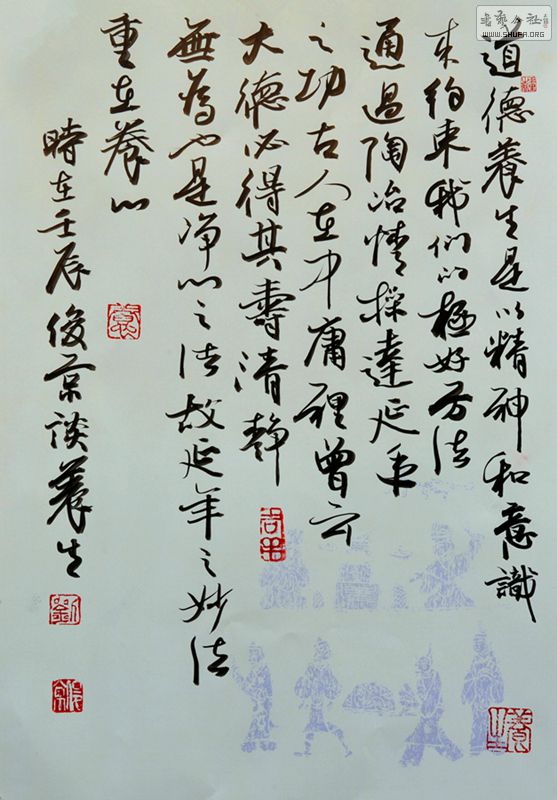 道德養生是以精神和意識
来約束我們的極好方法
通過陶冶情操達延年
之功古人在中庸裡曾云
大德必得其壽清靜
無為也是淨心之法故延年之妙法
重在養心
時在壬辰俊京談養生
劉
養生
書藝公社
WWW.SHUFA.ORG